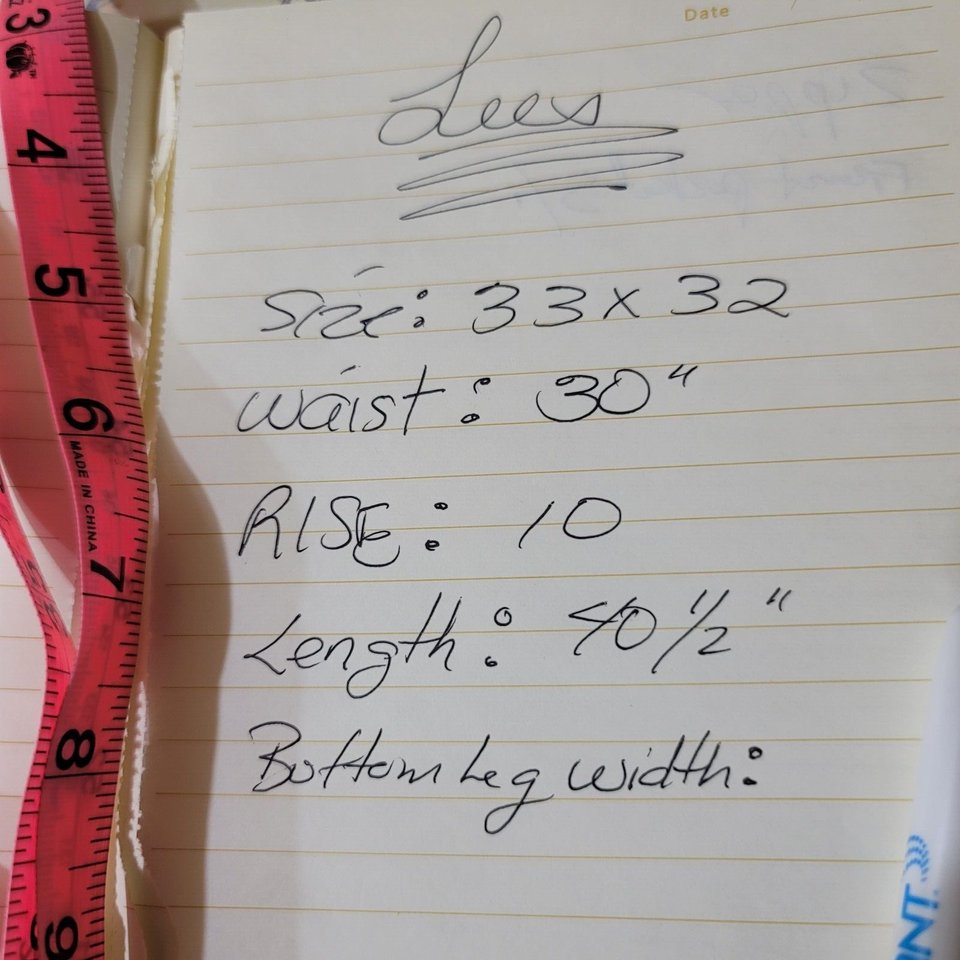 Date
Lees
Size: 33 x 32
Waist: 30"
RISE: 10
Length: 40 1/2"
Bottom Leg width:
3
4
5
6
MADE IN CHINA
7
8
9